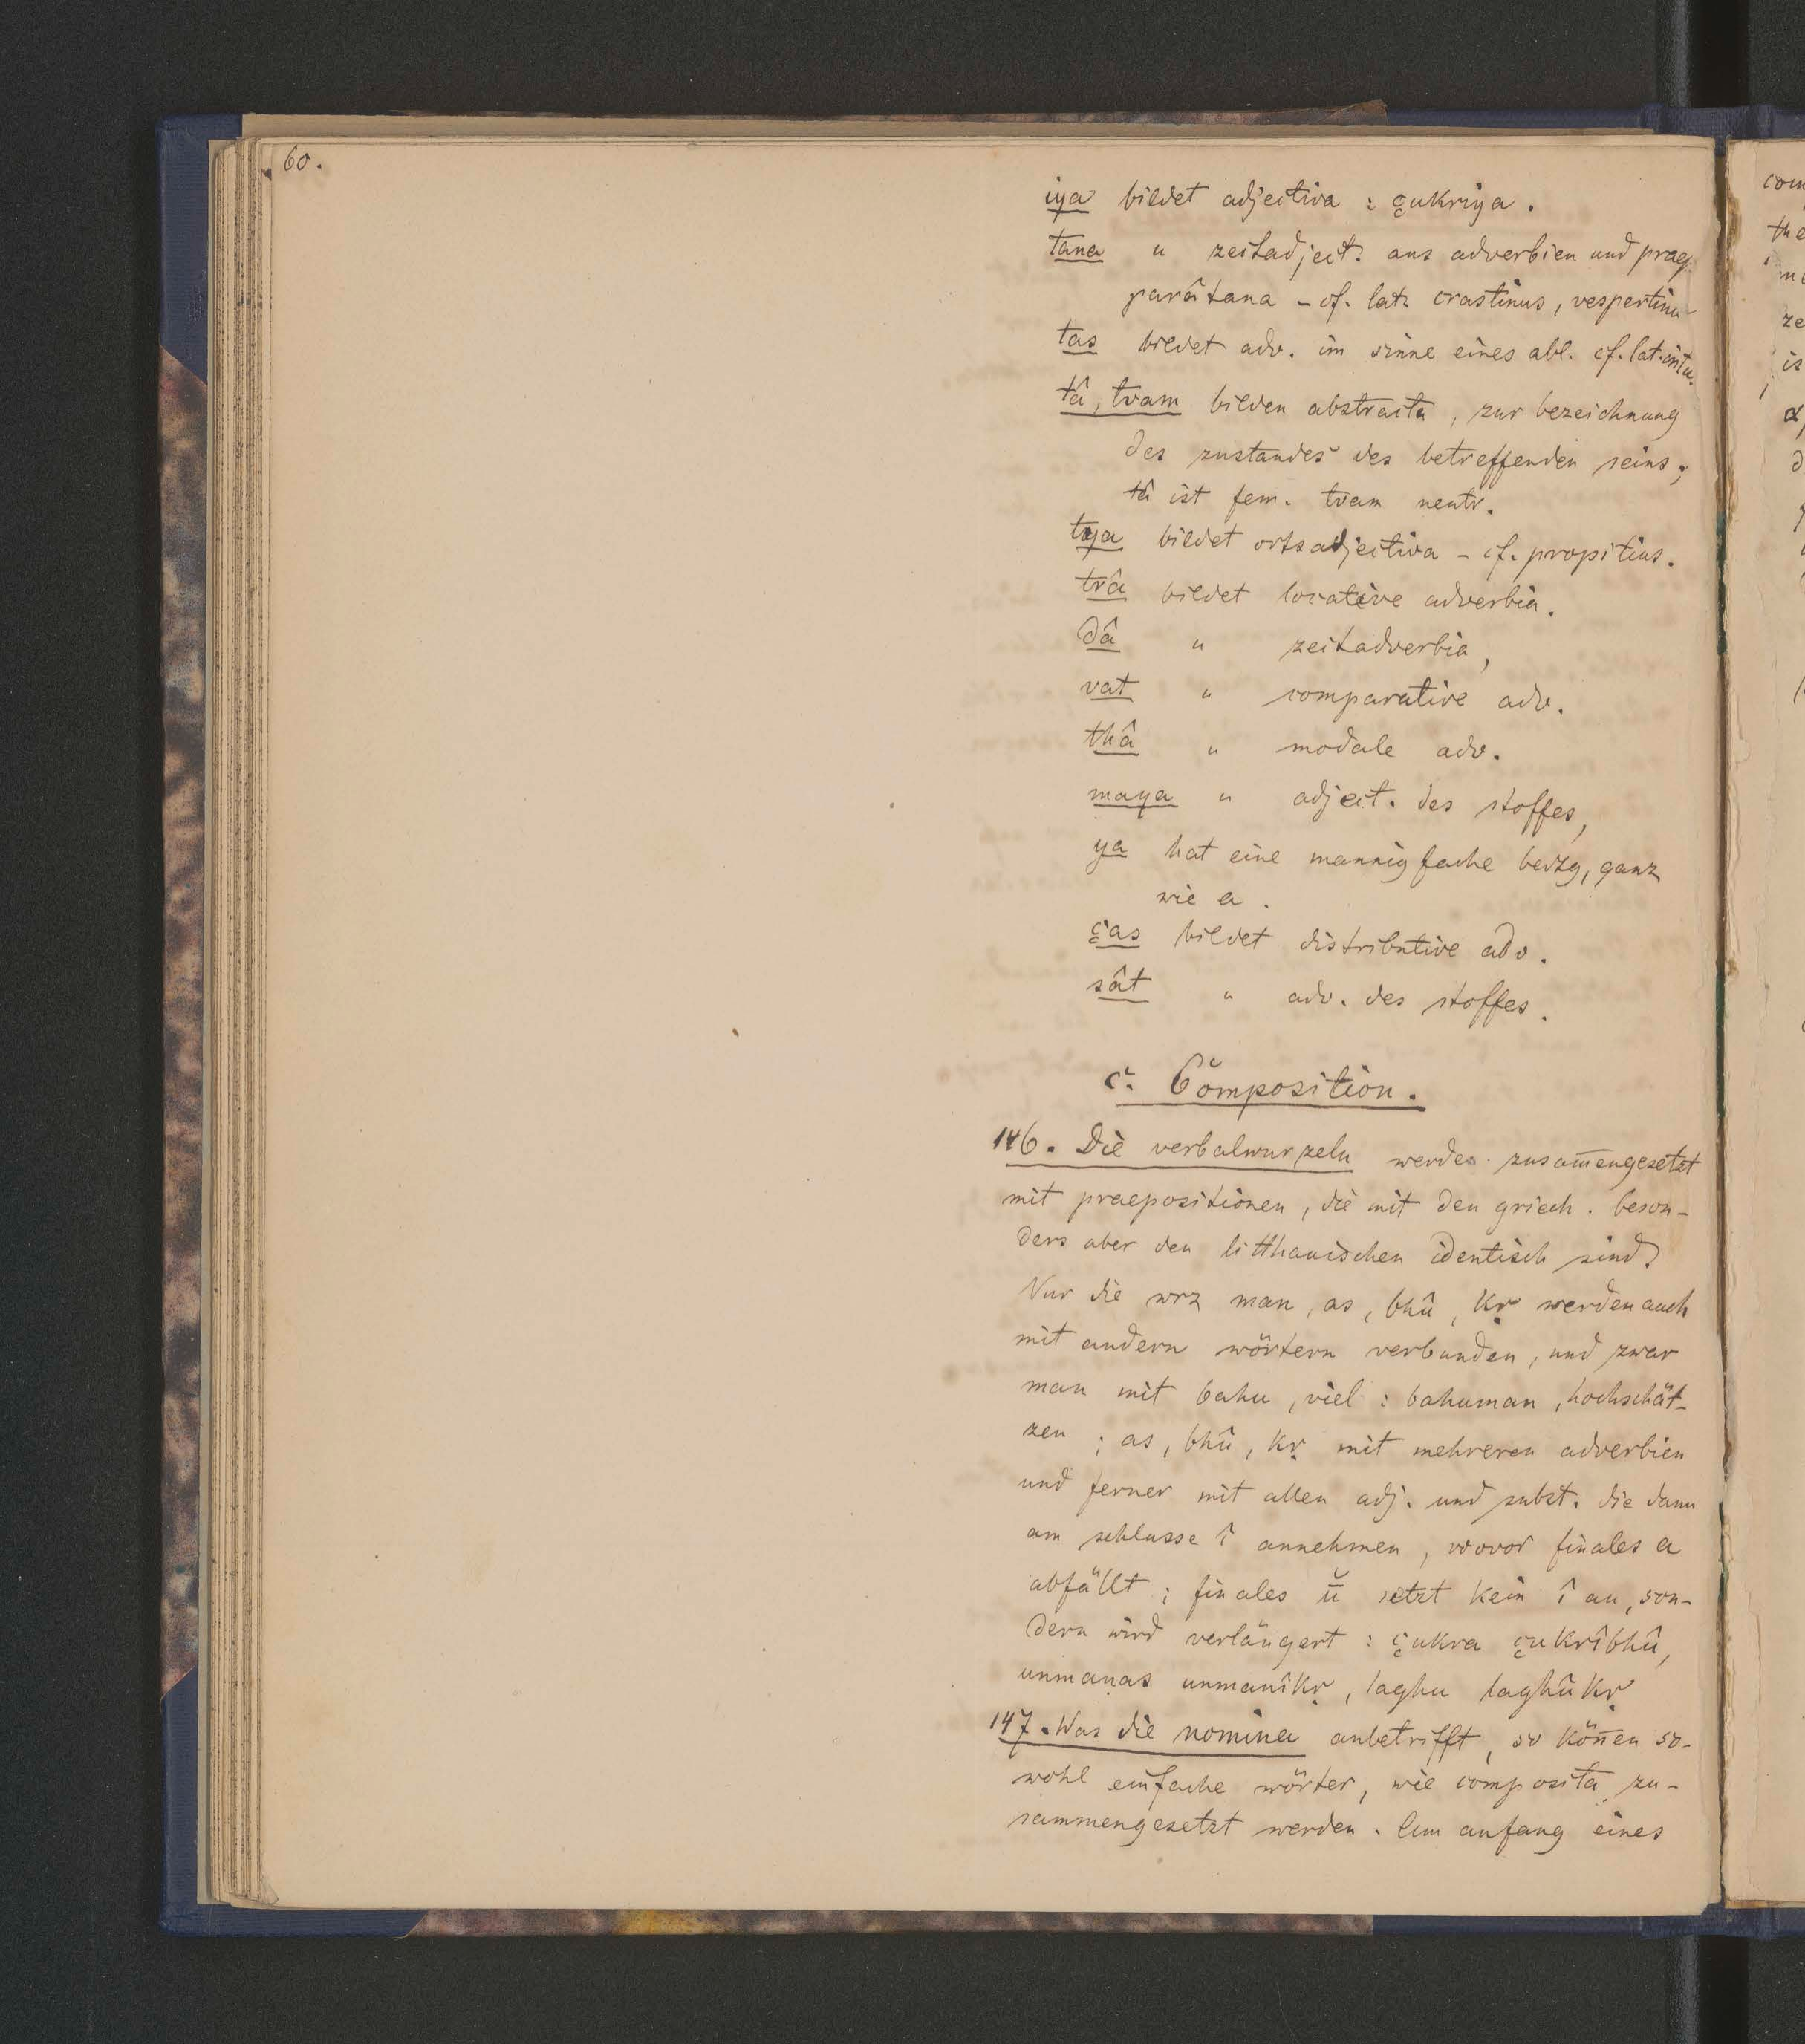 60.
iya bildet adjectiva : çukriya.
tana " zeitadject. aus adverbien und praep
parâtana – cf. lat. crastinus, vespertinu
tas bildet adv. im sinne eines abl. cf. lat. intu.
tâ, tvam bilden abstracta, zur bezeichnung
des zustandes des betreffenden seins;
tâ ist fem. tvam neutr.
tya bildet ortsadjectiva – cf. propitius.
trâ bildet locative adverbia.
dâ " zeitadverbia,
vat " comparative adv.
thâ " modale adv.
maya " adject. des stoffes,
ya hat eine mannigfache bedtg, ganz
wie a.
ças bildet distributive adv.
sât " adv. des stoffes.
c. Composition.
146. Die verbalwurzeln werden zusam̅engesetzt
mit praepositionen, die mit den griech. beson-
ders aber den litthauischen identisch sind.
Nur die wrz man, as, bhû, kṛ werden auch
mit andern wörtern verbunden, und zwar
man mit bahu, viel : bahuman, hochschät-
zen ; as, bhû, kṛ mit mehreren adverbien
und ferner mit allen adj. und subst. die dann
am schlusse î annehmen, wovor finales a
abfällt ; finales ū̆ setzt kein î an, son-
dern wird verlängert : çukra çukrîbhû,
unmaṇas unmanîkṛ, laghu laghûkṛ
147. Was die nomina anbetrifft, so kön̅en so-
wohl einfache wörter, wie composita zu-
sammengesetzt werden. Am anfang eines
com
the
ze
is